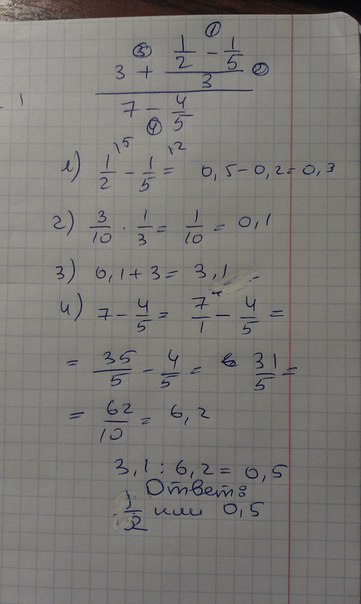 ①
③ 1/2 - 1/5
3 + ――― ②
3
7 - 4/5
④
1) 1/2 \5 - 1/5 \2 = 0,5 - 0,2 = 0,3
2) 3/10 · 1/3 = 1/10 = 0,1
3) 0,1 + 3 = 3,1
4) 7 - 4/5 = 7/1 - 4/5 =
= 35/5 - 4/5 = 31/5 =
= 62/10 = 6,2
3,1 : 6,2 = 0,5
Ответ:
1/2 или 0,5